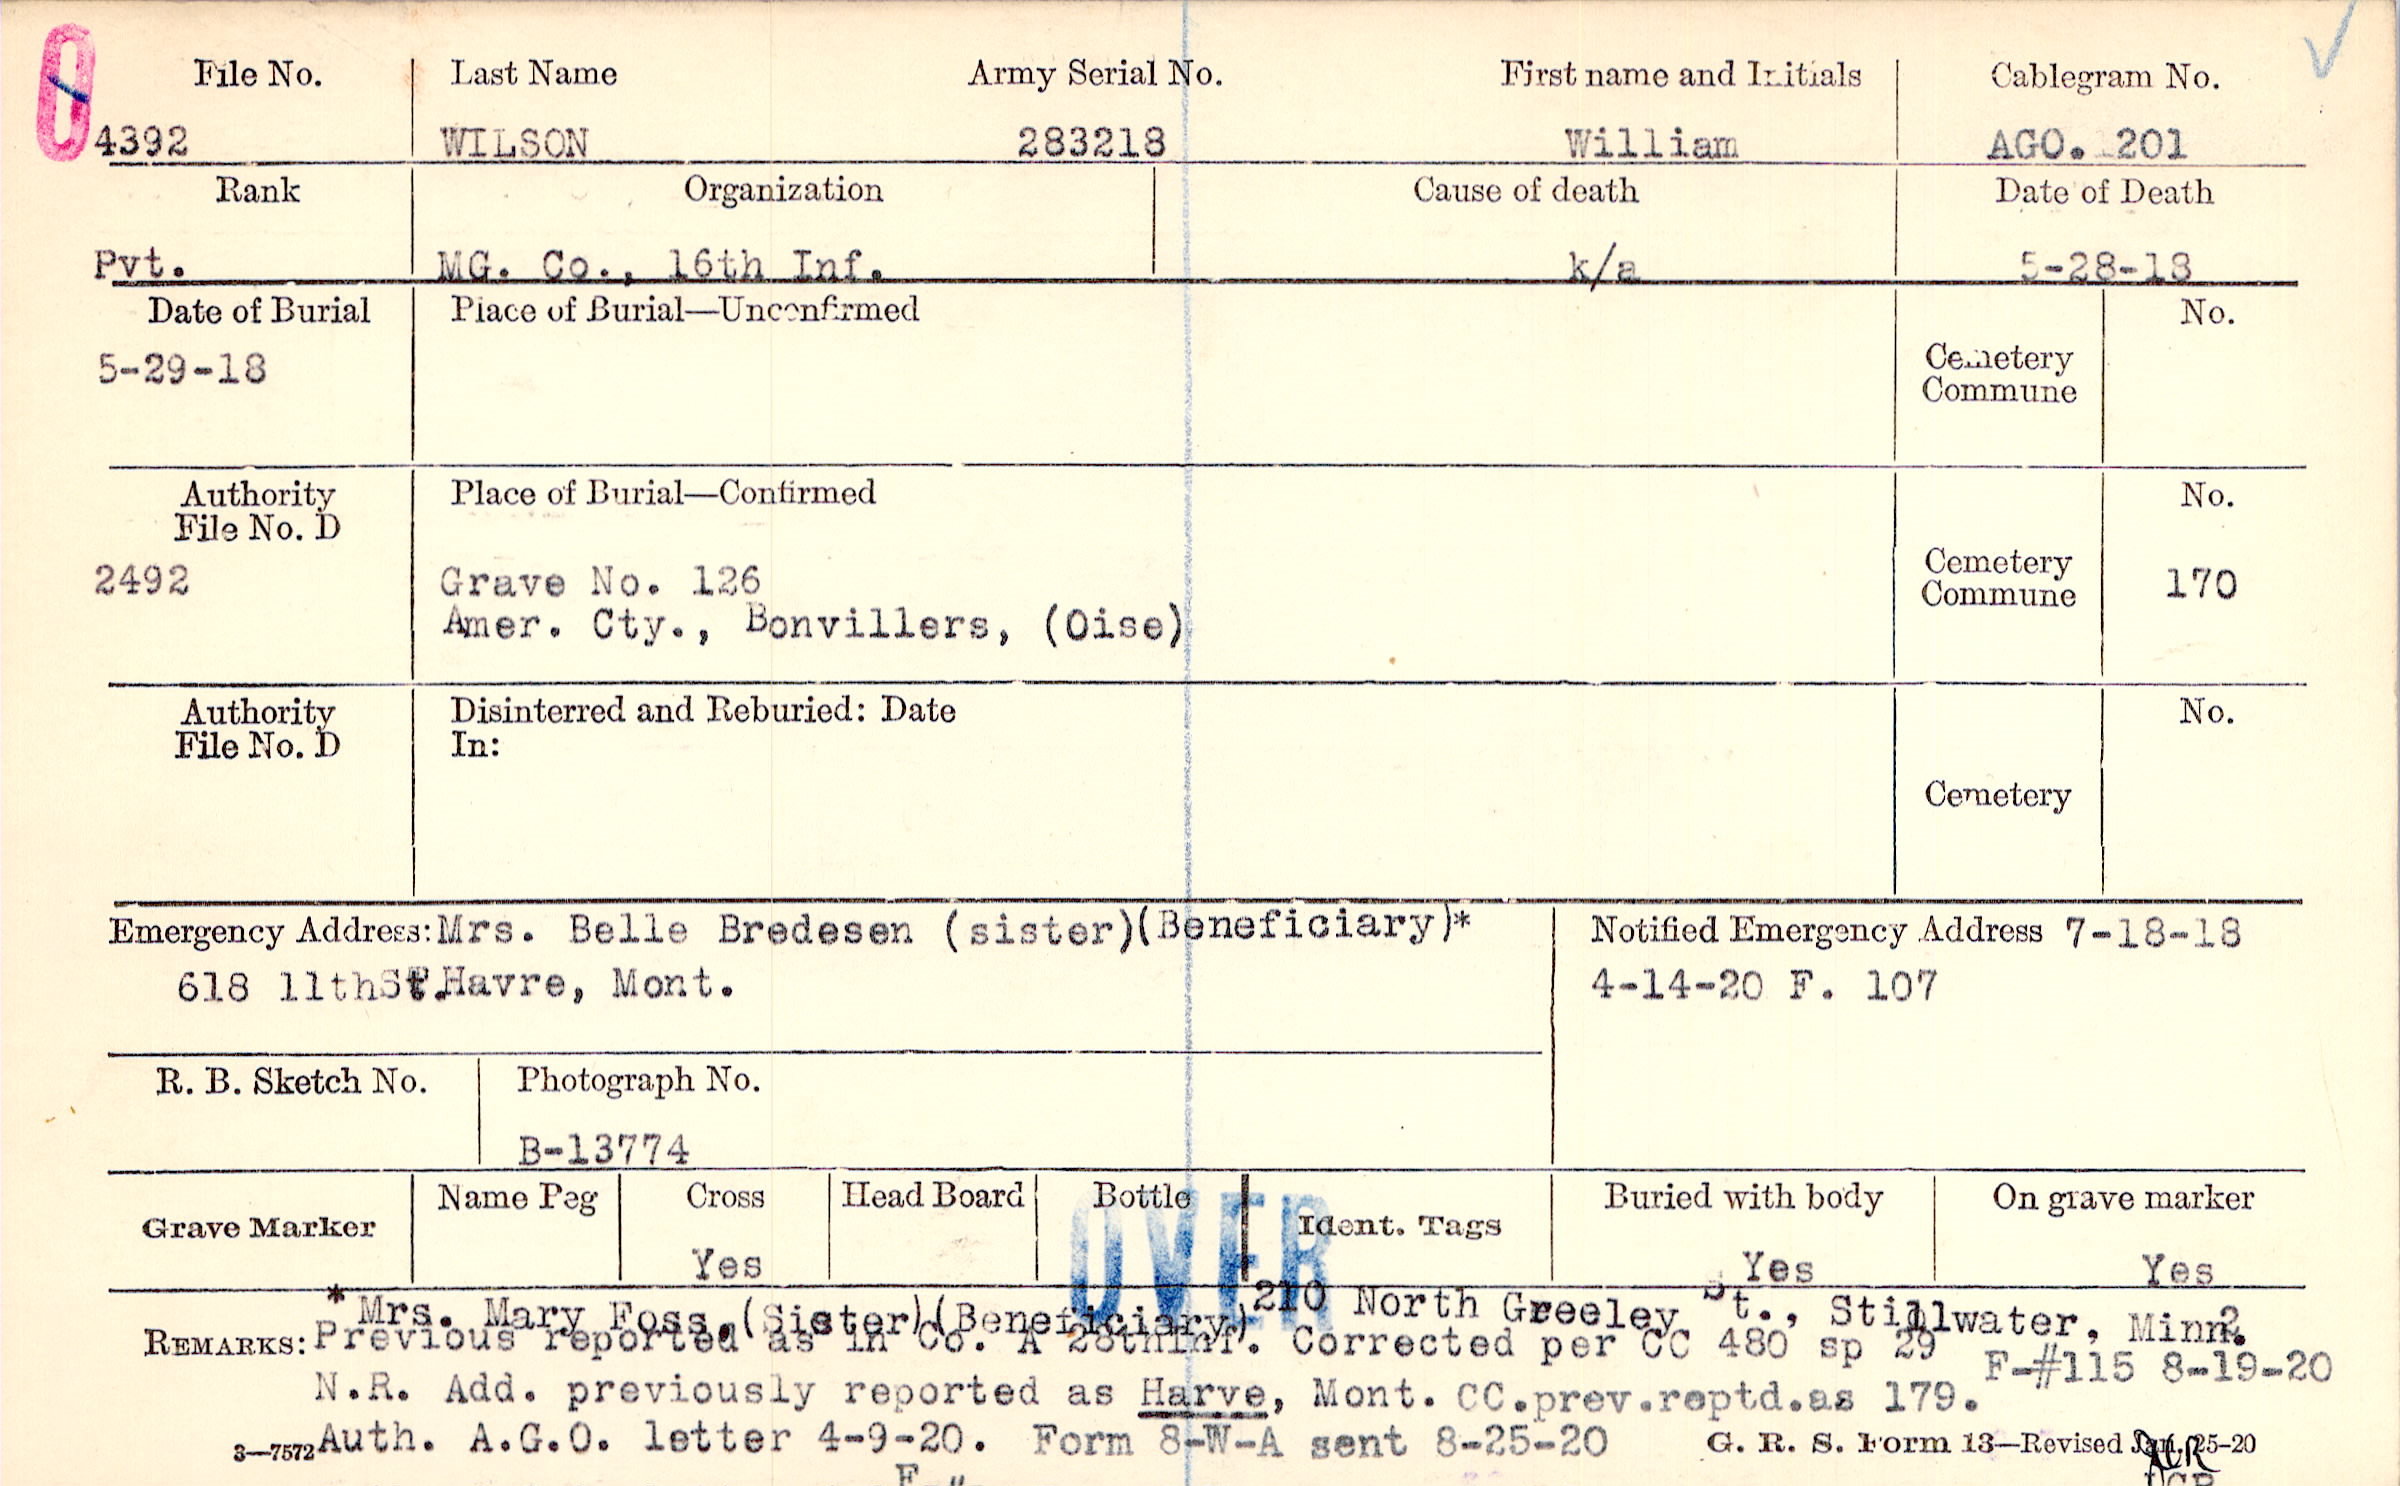 File No. Last Name Army Serial No. First name and Initials Cablegram No.
4392 WILSON 283218 William AGO. 201
Rank Organization Cause of death Date of Death
Pvt. MG. Co., 16th Inf. k/a 5-28-18
Date of Burial Place of Burial—Unconfirmed No.
5-29-18
Cemetery
Commune
Authority Place of Burial—Confirmed No.
File No. D
2492 Grave No. 126
Amer. Cty., Bonvillers, (Oise)
Cemetery
Commune 170
Authority Disinterred and Reburied: Date No.
File No. D In:
Cemetery
Emergency Address: Mrs. Belle Bredesen (sister)(Beneficiary)*
618 11thSt.Havre, Mont.
Notified Emergency Address 7-18-18
4-14-20 F. 107
R. B. Sketch No. Photograph No.
B-13774
Grave Marker Name Peg Cross Head Board Bottle Ident. Tags Buried with body On grave marker
Yes Yes Yes
OVER
* Mrs. Mary Foss,(Sister)(Beneficiary) 210 North Greeley St., Stillwater, Minn.
REMARKS: Previous reported as in Co. A 28thInf. Corrected per CC 480 sp 29 2
F-#115 8-19-20
N.R. Add. previously reported as Harve, Mont. CC.prev.reptd.as 179.
Auth. A.G.O. letter 4-9-20. Form 8-W-A sent 8-25-20
3—7572 G. R. S. Form 13—Revised Jan. 25-20